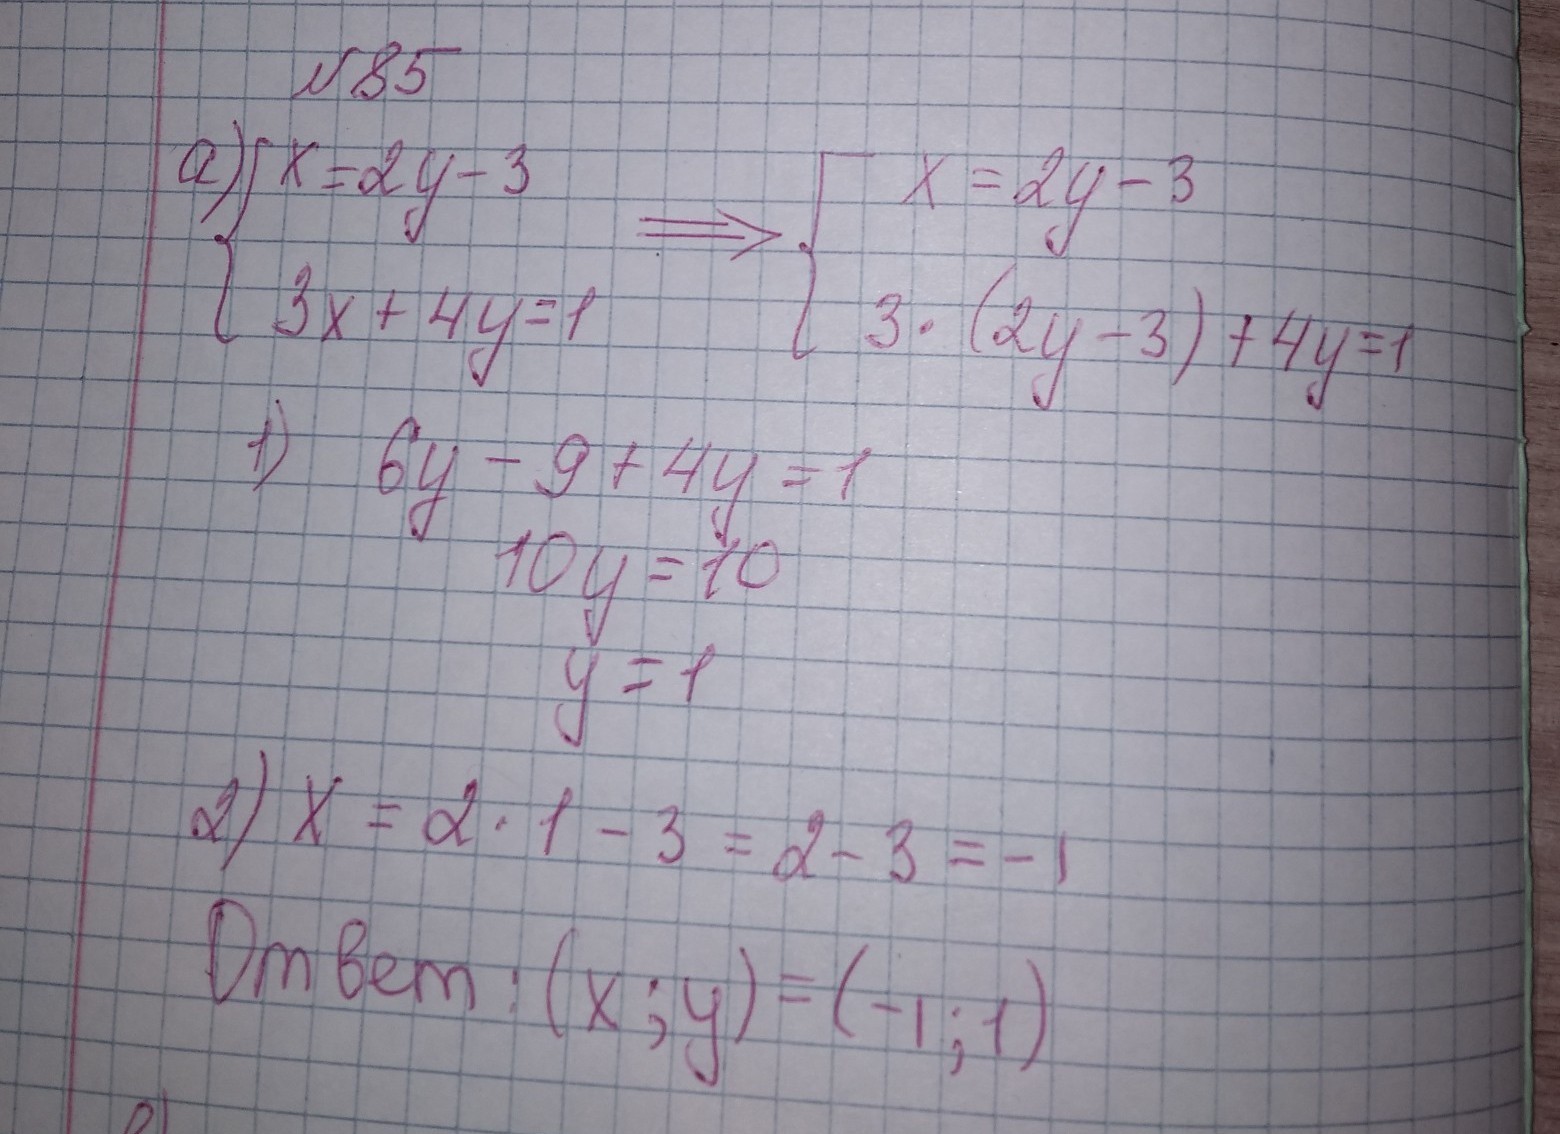 №85
а) { x = 2y - 3 ⟹ { x = 2y - 3
3x + 4y = 1 3 · (2y - 3) + 4y = 1
1) 6y - 9 + 4y = 1
10y = 10
y = 1
2) x = 2 · 1 - 3 = 2 - 3 = -1
Ответ: (x; y) = (-1; 1)